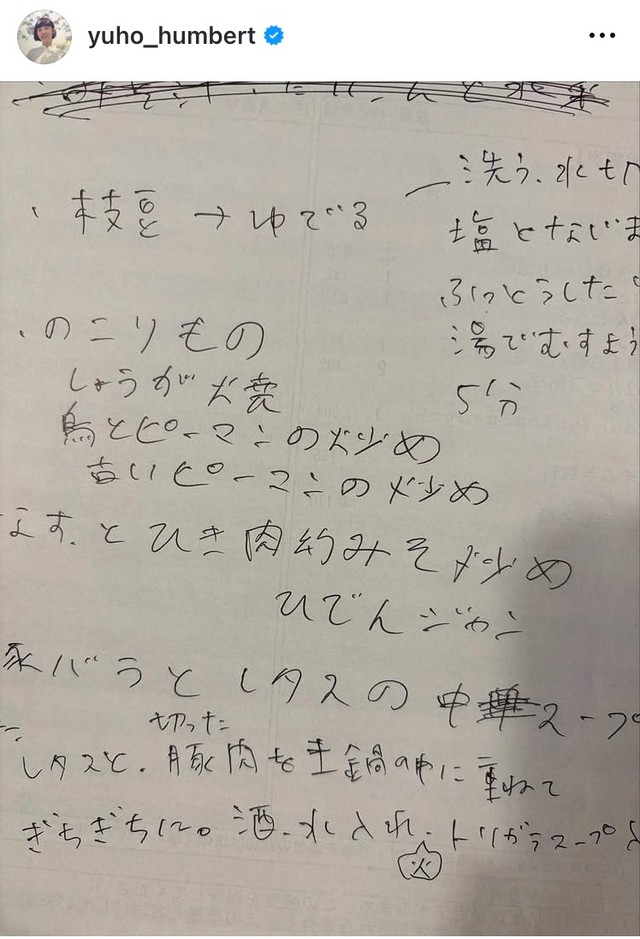 yuho_humbert
洗う、水切
・枝豆 → ゆでる
塩となじま
ふっとうした
湯でむすよう
5分
・のこりもの
しょうが焼
鳥とピーマンの炒め
古いピーマンの炒め
なす、とひき肉 みそ炒め
ひでんジャン
豚バラとレタスの中華スープ
切った
レタスと、豚肉を土鍋の中に重ねて
ぎちぎちに。酒、水入れ、トリガラスープ
火